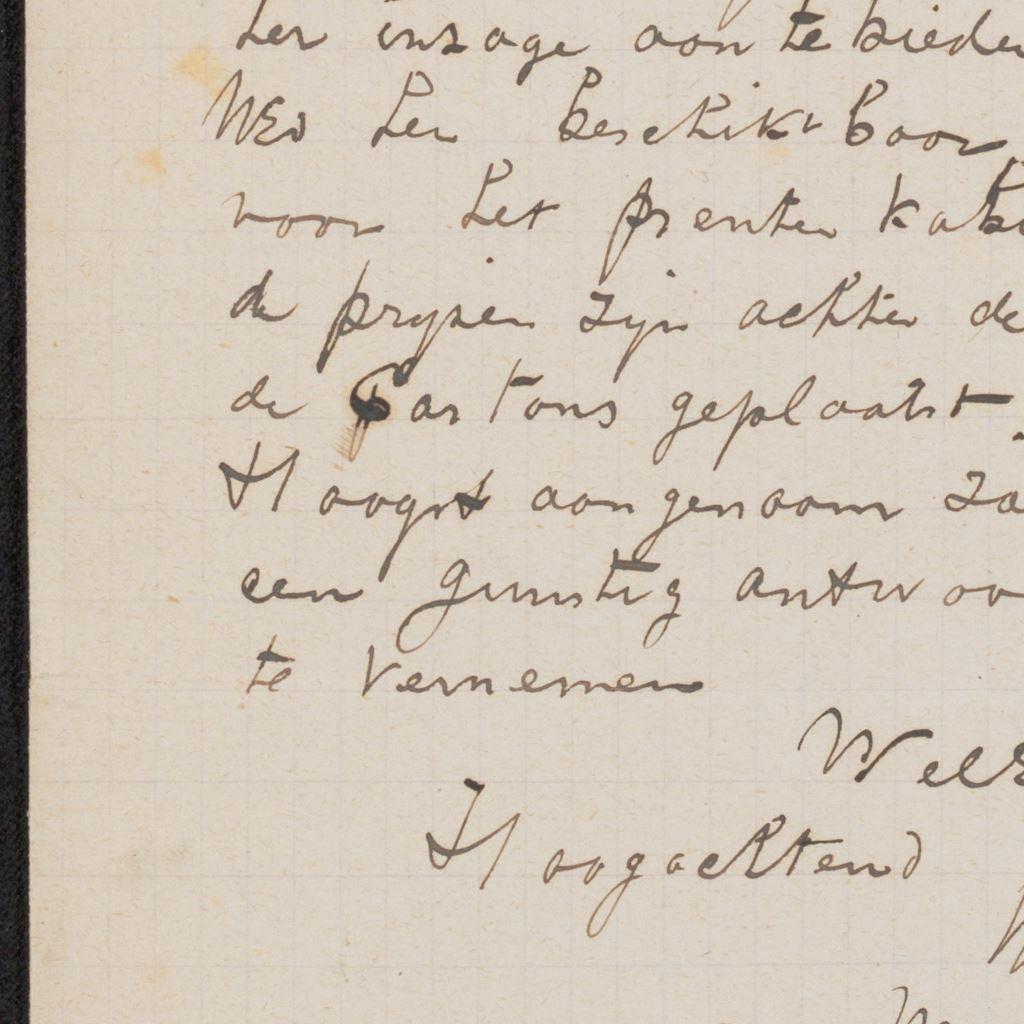 ter inzage aan te biede
WEd ter beschik baar
voor het prenten kab
de pryzen zijn achter de
de Cartons geplaatst
Hoogst aangenaam za
een gunstig antwoo
te vernemen
WelE
Hoogachtend